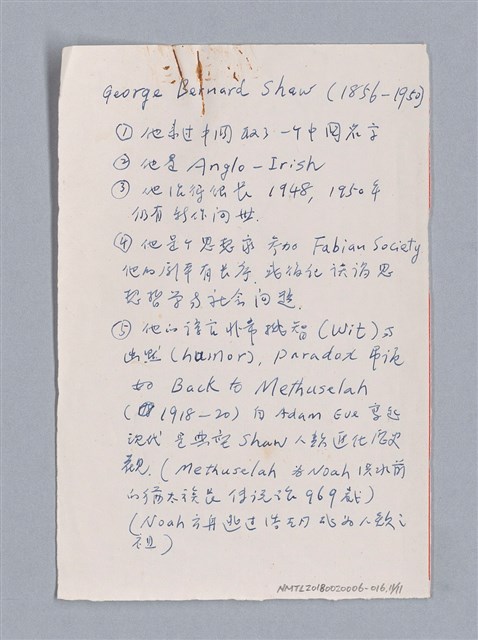 George Bernard Shaw (1856-1950)
① 他来过中国 取了一个中国名字
② 他是 Anglo-Irish
③ 他活得很长 1948, 1950年
仍有新作问世.
④ 他是个思想家 参加 Fabian Society
他的剧平有长序, 戏 谈论思
想哲学与社会问题.
⑤ 他的语言非常机智 (wit) 与
幽默 (humor), Paradox
如 Back to Methuselah
(1918-20) 自 Adam Eve 写起
现代 是典型 Shaw 人类进化历史
观. (Methuselah 为 Noah 洪水前
的犹太族长 传说活 969 岁)
(Noah 方舟逃过浩劫 成为人类之
祖)
NMTL20180020006-016.11/11